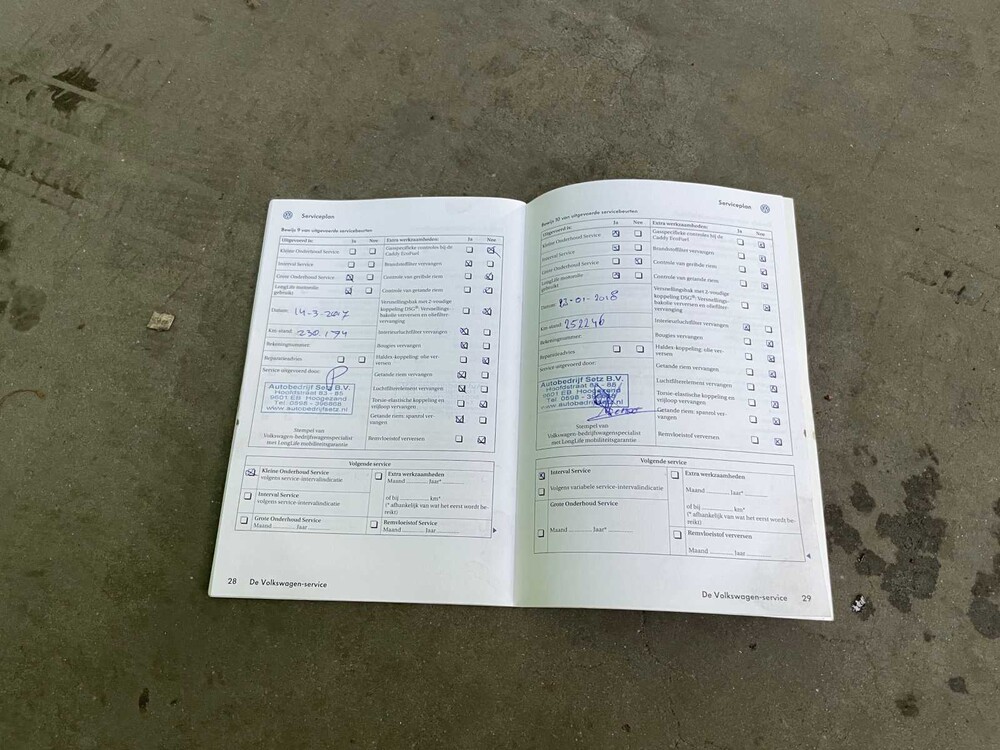 Serviceplan
Bewijs 9 van uitgevoerde servicebeurten
Uitgevoerd is: Ja Nee
Kleine Onderhoud Service
Interval Service
Grote Onderhoud Service
LongLife motorolie
gebruikt
Datum: 14-3-2017
Km-stand: 230.174
Rekeningnummer:
Reparatieadvies
Service uitgevoerd door:
Autobedrijf Setz B.V.
Hoofdstraat 83 - 85
9601 EB Hoogezand
Tel. 0598 - 396868
www.autobedrijfsetz.nl
Stempel van
Volkswagen-bedrijfswagenspecialist
met LongLife mobiliteitsgarantie
Extra werkzaamheden: Ja Nee
Gasspecifieke controles bij de
Caddy EcoFuel
Brandstoffilter vervangen
Controle van geribde riem
Controle van getande riem
Versnellingsbak met 2-voudige
koppeling DSG®: Versnellings-
bakolie verversen en oliefilter-
vervanging
Interieurluchtfilter vervangen
Bougies vervangen
Haldex-koppeling: olie ver-
versen
Getande riem vervangen
Luchtfilterelement vervangen
Torsie-elastische koppeling en
vrijloop vervangen
Getande riem: spanrol ver-
vangen
Remvloeistof verversen
Volgende service
Kleine Onderhoud Service
volgens service-intervalindicatie
Interval Service
volgens service-intervalindicatie
Grote Onderhoud Service
Maand ____ Jaar ____
Extra werkzaamheden
Maand ____ Jaar* ____
of bij ____ km*
(* afhankelijk van wat het eerst wordt be-
reikt)
Remvloeistof Service
Maand ____ Jaar ____
28 De Volkswagen-service
Serviceplan
Bewijs 10 van uitgevoerde servicebeurten
Uitgevoerd is: Ja Nee
Kleine Onderhoud Service
Interval Service
Grote Onderhoud Service
LongLife motorolie
gebruikt
Datum: 12-01-2018
Km-stand: 252246
Rekeningnummer:
Reparatieadvies
Service uitgevoerd door:
Autobedrijf Setz B.V.
Hoofdstraat 83 - 85
9601 EB Hoogezand
Tel. 0598 -
www.autobedrijfsetz.nl
Stempel van
Volkswagen-bedrijfswagenspecialist
met LongLife mobiliteitsgarantie
Extra werkzaamheden: Ja Nee
Gasspecifieke controles bij de
Caddy EcoFuel
Brandstoffilter vervangen
Controle van geribde riem
Controle van getande riem
Versnellingsbak met 2-voudige
koppeling DSG®: Versnellings-
bakolie verversen en oliefilter-
vervanging
Interieurluchtfilter vervangen
Bougies vervangen
Haldex-koppeling: olie ver-
versen
Getande riem vervangen
Luchtfilterelement vervangen
Torsie-elastische koppeling en
vrijloop vervangen
Getande riem: spanrol ver-
vangen
Remvloeistof verversen
Volgende service
Interval Service
Volgens variabele service-intervalindicatie
Grote Onderhoud Service
Maand ____ Jaar* ____
Extra werkzaamheden
Maand ____ Jaar* ____
of bij ____ km*
(* afhankelijk van wat het eerst wordt be-
reikt)
Remvloeistof verversen
Maand ____ Jaar ____
De Volkswagen-service 29